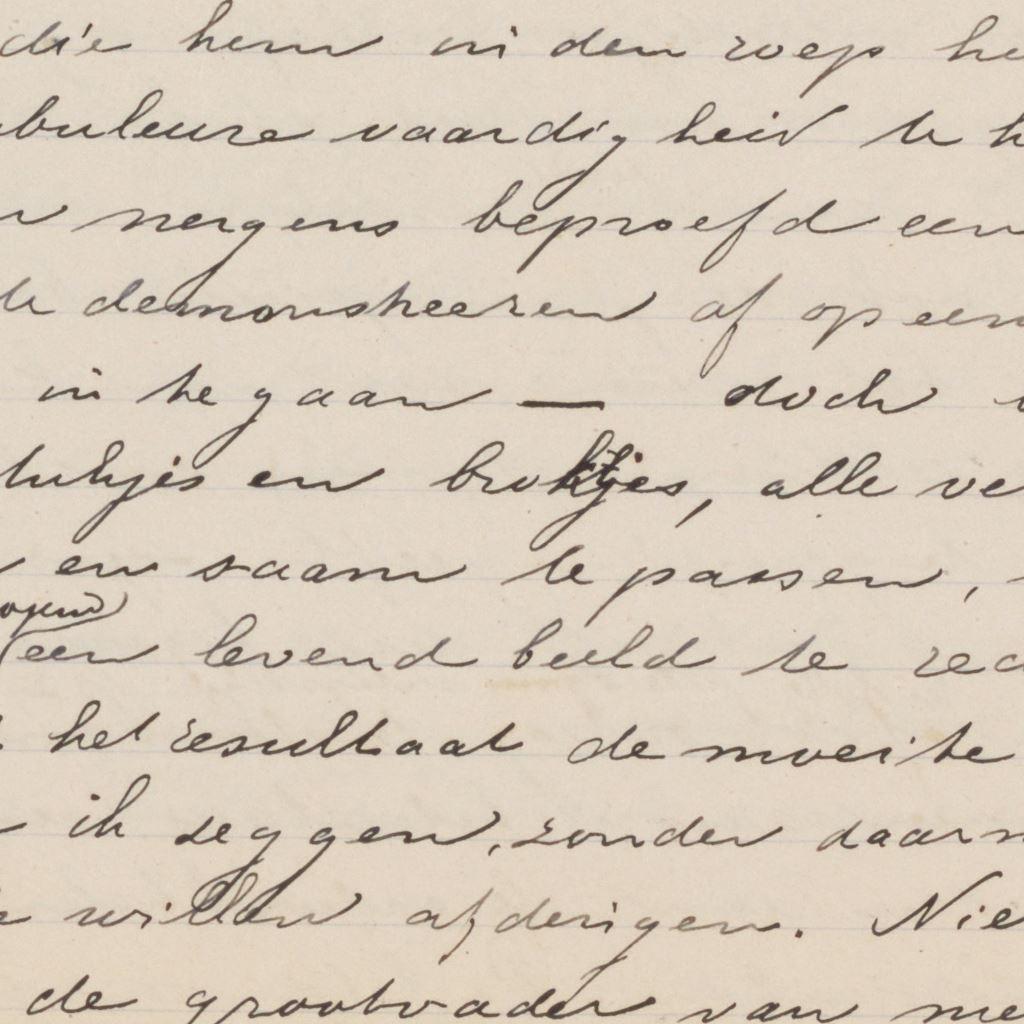 die hem in den roep he
abuleuze vaardigheid te h
nergens beproefd een
te demonstreeren of op een
in te gaan — doch
stukjes en brokjes, alle ve
en saam te passen,
een levend beeld te rec
het resultaat de moeite
ik zeggen, zonder daarm
willen afdingen. Nie
de grootvader van me